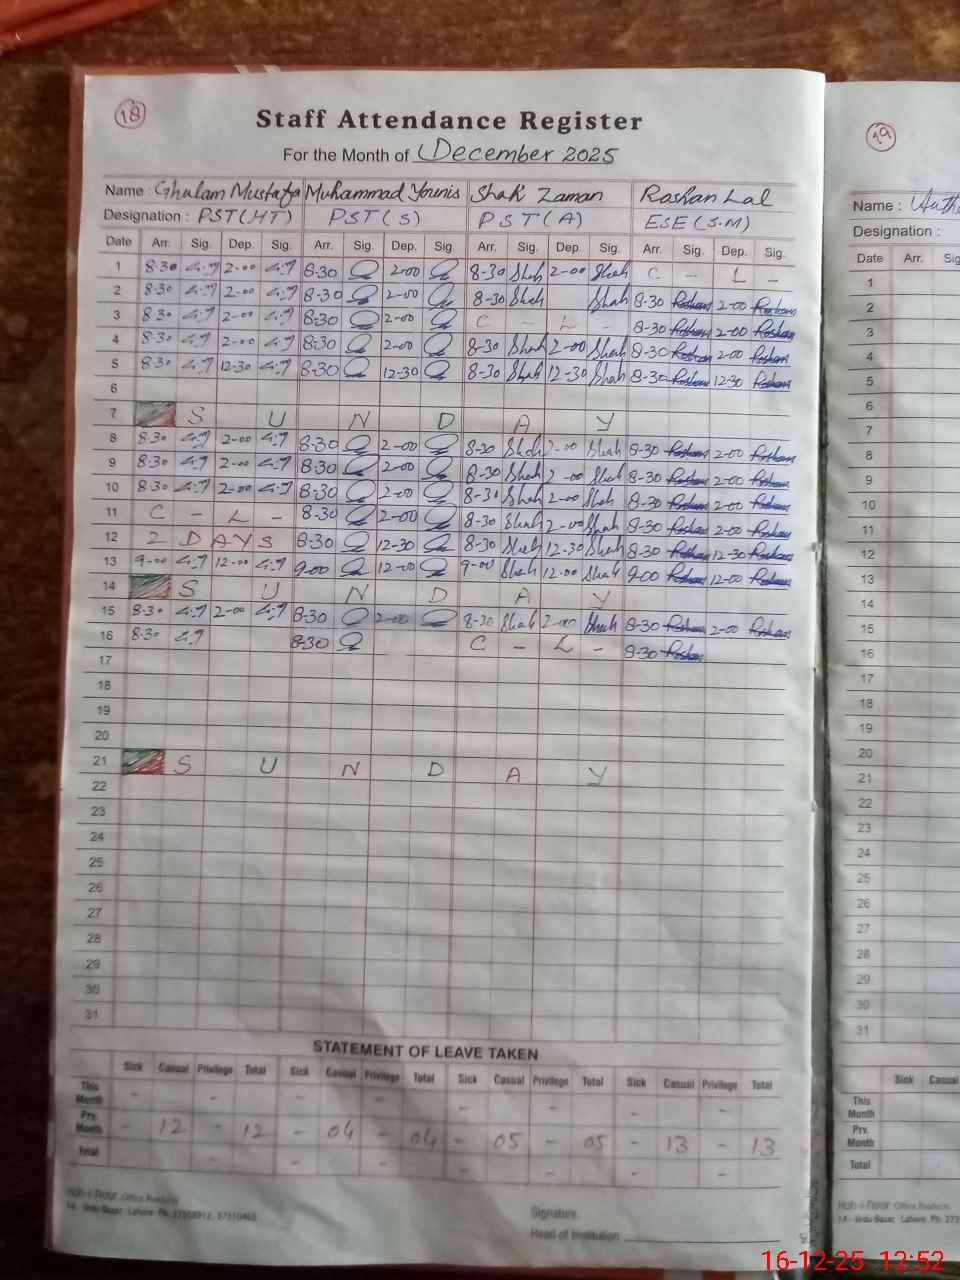 18
Staff Attendance Register
For the Month of December 2025
Name : Ghulam Mustafa Muhammad Younis Shah Zaman Roshan Lal
Designation : PST(HT) PST(S) PST(A) ESE(S.M)
Date Arr. Sig. Dep. Sig. Arr. Sig. Dep. Sig. Arr. Sig. Dep. Sig. Arr. Sig. Dep. Sig.
1 8-30 2-00 8-30 2-00 8-30 Shah 2-00 Shah C - L -
2 8-30 2-00 8-30 2-00 8-30 Shah Shah 8-30 Roshan 2-00 Roshan
3 8-30 2-00 8-30 2-00 C - L - 8-30 Roshan 2-00 Roshan
4 8-30 2-00 8-30 2-00 8-30 Shah 2-00 Shah 8-30 Roshan 2-00 Roshan
5 8-30 12-30 8-30 12-30 8-30 Shah 12-30 Shah 8-30 Roshan 12-30 Roshan
6
7 S U N D A Y
8 8-30 2-00 8-30 2-00 8-30 Shah 2-00 Shah 8-30 Roshan 2-00 Roshan
9 8-30 2-00 8-30 2-00 8-30 Shah 2-00 Shah 8-30 Roshan 2-00 Roshan
10 8-30 2-00 8-30 2-00 8-30 Shah 2-00 Shah 8-30 Roshan 2-00 Roshan
11 C - L - 8-30 2-00 8-30 Shah 2-00 Shah 8-30 Roshan 2-00 Roshan
12 2 DAYS 8-30 12-30 8-30 Shah 12-30 Shah 8-30 Roshan 12-30 Roshan
13 9-00 12-00 9-00 12-00 9-00 Shah 12-00 Shah 9-00 Roshan 12-00 Roshan
14 S U N D A Y
15 8-30 2-00 8-30 2-00 8-30 Shah 2-00 Shah 8-30 Roshan 2-00 Roshan
16 8-30 8-30 C - L - 8-30 Roshan
17
18
19
20
21 S U N D A Y
22
23
24
25
26
27
28
29
30
31
STATEMENT OF LEAVE TAKEN
Sick Casual Privilege Total Sick Casual Privilege Total Sick Casual Privilege Total Sick Casual Privilege Total
This Month - - - - - - - -
Prv. Month - 12 - 12 - 04 - 04 - 05 - 05 - 13 - 13
Total - - - - - -
Office Products
14 - Urdu Bazar - Lahore. Ph:
Signature
Head of Institution
19
Name :
Designation :
Date Arr. Sig
1
2
3
4
5
6
7
8
9
10
11
12
13
14
15
16
17
18
19
20
21
22
23
24
25
26
27
28
29
30
31
Sick Casual
This Month
Prv. Month
Total
Office Products
14 - Urdu Bazar - Lahore. Ph:
16-12-25 12:52